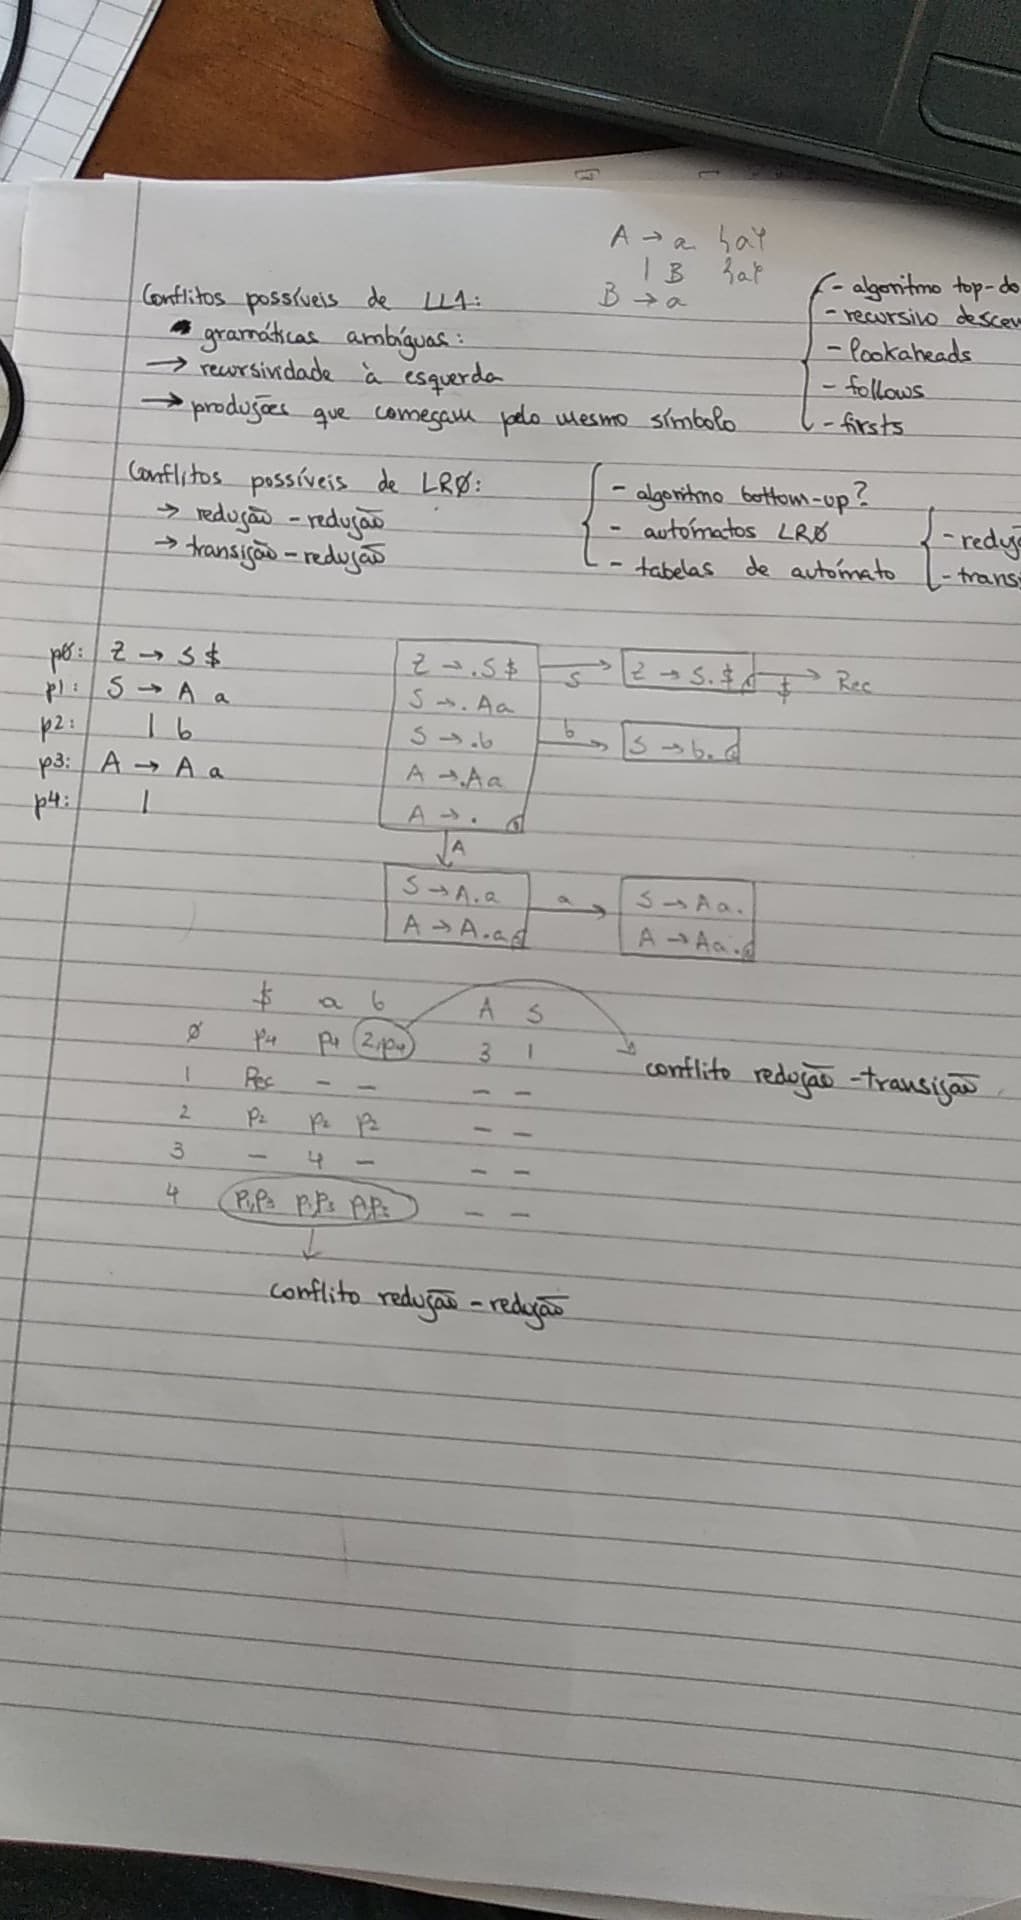 A → a {a}
| B {a}
B → a
Conflitos possíveis de LL1:
gramáticas ambíguas:
→ recursividade à esquerda
→ produções que começam pelo mesmo símbolo
- algoritmo top-do
- recursivo descen
- lookaheads
- follows
- firsts
Conflitos possíveis de LRØ:
→ redução - redução
→ transição - redução
- algoritmo bottom-up?
- autómatos LRØ
- tabelas de autómato
- reduç
- trans
pØ: Z → S $
p1: S → A a
p2: | b
p3: A → A a
p4: |
Z → .S$
S → .Aa
S → .b
A → .Aa
A → . 0
S
Z → S.$ 1
$
Rec
b
S → b. 2
A
S → A.a
A → A.a 3
a
S → Aa.
A → Aa. 4
$ a b A S
Ø P4 P4 2,P4 3 1
1 Rec - - - -
2 P2 P2 P2 - -
3 - 4 - - -
4 P1,P3 P1,P3 P1,P3 - -
conflito redução - transição
conflito redução - redução